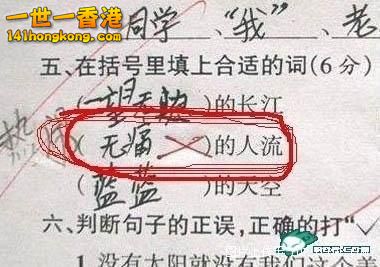 一世一香港
141hongkong.com
同学 、“我” 、老
五、在括号里填上合适的词(6分)
(一望无
)的长江
(无痛 )的人流
(蓝蓝 )的天空
六、判断句子的正误，正确的打“√
1.没有太阳就没有我们这个美